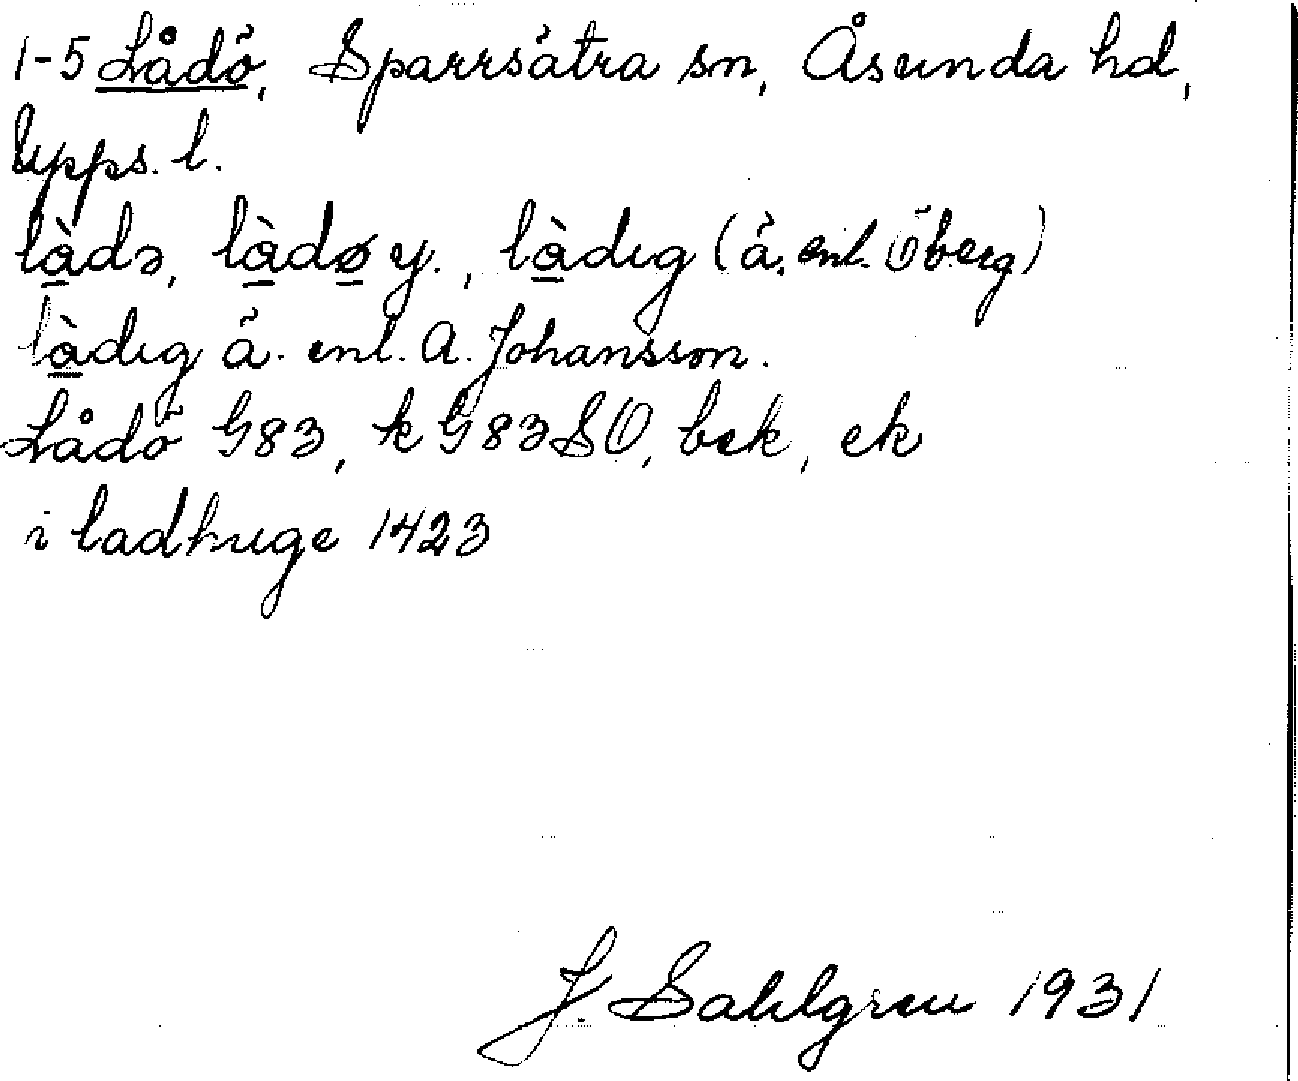 1-5 Lådö, Sparrsätra sn, Åsunda hd,
Upps. l.
là̱də, là̱dø̱ y., là̱dıg (ä. enl. Öberg)
là̱dıg ä. enl. A. Johansson.
Lådö G83, k G83SO, bek, ek
i ladhuge 1423
J. Sahlgren 1931